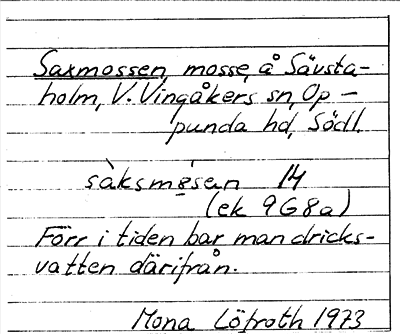 Saxmossen, mosse, å Sävsta-
holm, V. Vingåkers sn, Op-
punda hd, Södl.
sàksmósen 14
(ek 9G8a)
Förr i tiden bar man dricks-
vatten därifrån.
Mona Löfroth 1973